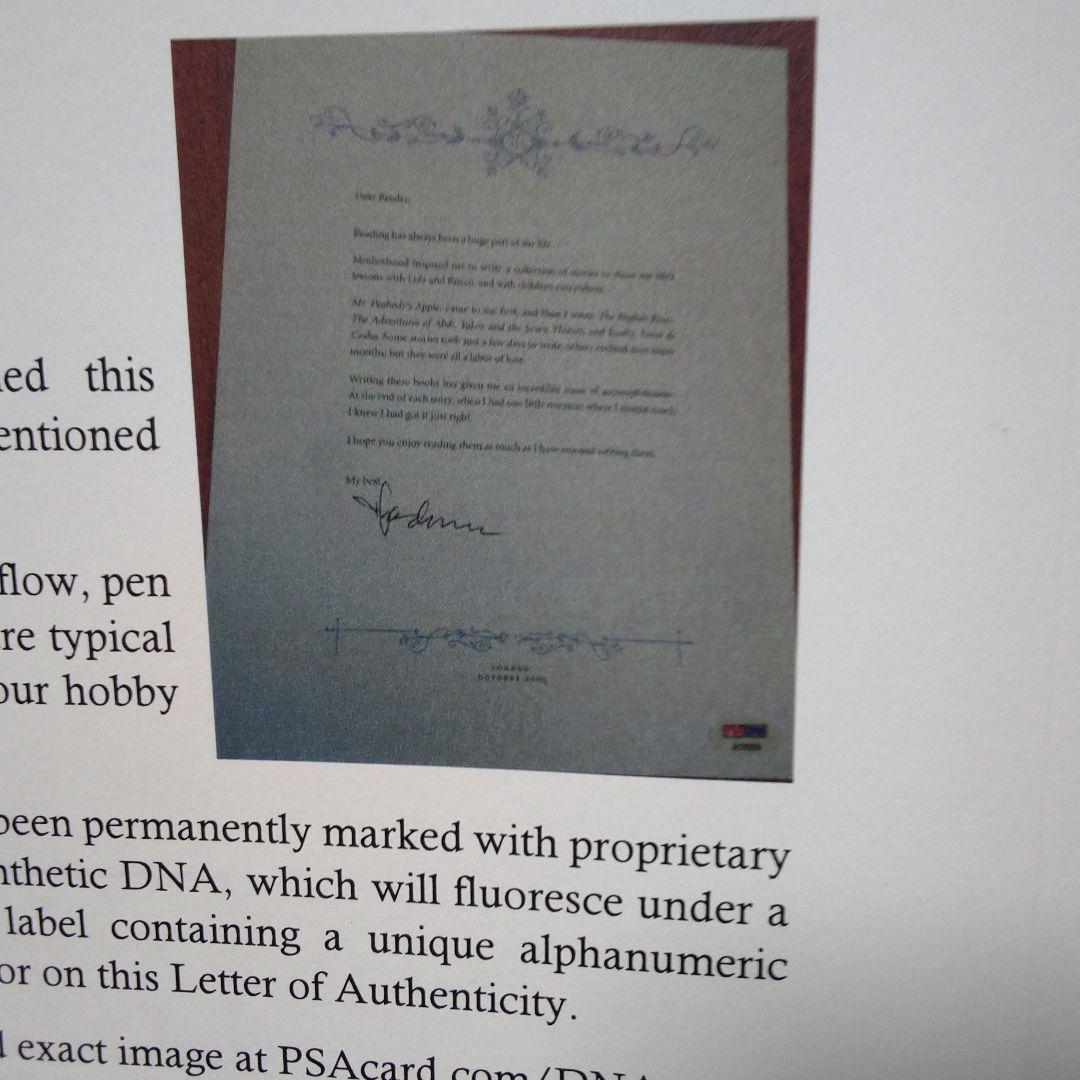 Dear Reader,
Reading has always been a huge part of my life.
Motherhood inspired me to write a collection of stories to share my life's
lessons with Lola and Rocco, and with children everywhere.
Mr. Peabody's Apples came to me first, and then I wrote The English Roses,
The Adventures of Abdi, Yakov and the Seven Thieves, and finally, Lotsa de
Casha. Some stories took just a few days to write, others evolved over many
months, but they were all a labor of love.
Writing these books has given me an incredible sense of accomplishment.
At the end of each story, when I had one little moment where I
I knew I had got it just right.
I hope you enjoy reading them as much as I have enjoyed writing them.
My best,
Madonna
LONDON
OCTOBER 2005
ed this
entioned
flow, pen
re typical
our hobby
been permanently marked with proprietary
nthetic DNA, which will fluoresce under a
label containing a unique alphanumeric
or on this Letter of Authenticity.
d exact image at PSAcard.com/DNA